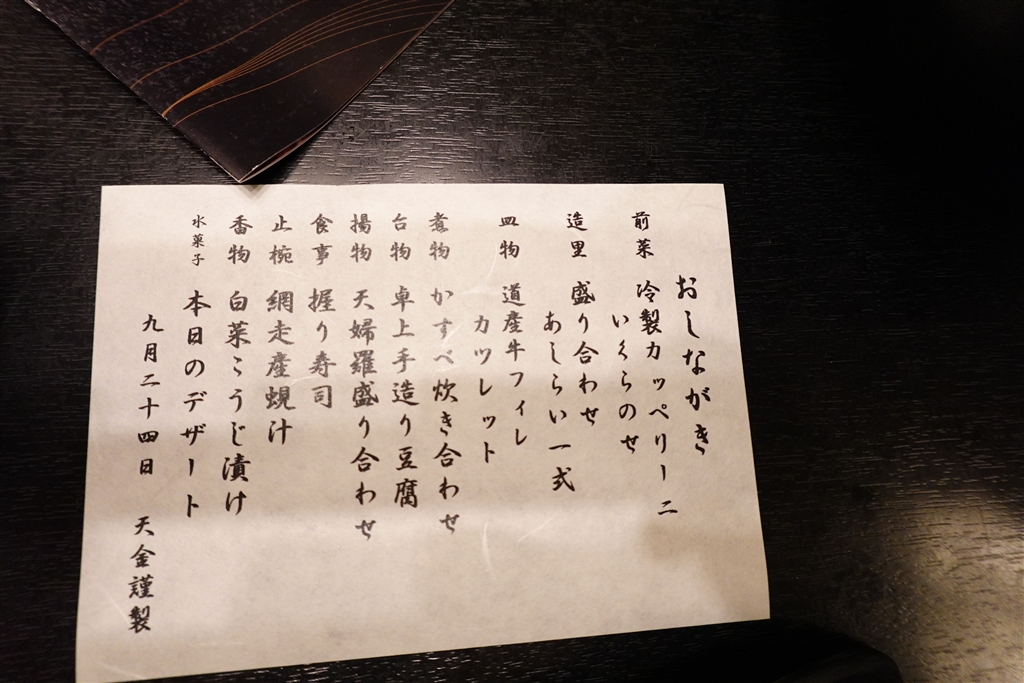 おしながき
前菜 冷製カッペリーニ
いくらのせ
造里 盛り合わせ
あしらい一式
皿物 道産牛フィレ
カツレット
煮物 かすべ炊き合わせ
台物 卓上手造り豆腐
揚物 天婦羅盛り合わせ
食事 握り寿司
止椀 網走産蜆汁
香物 白菜こうじ漬け
水菓子 本日のデザート
九月二十四日 天金謹製